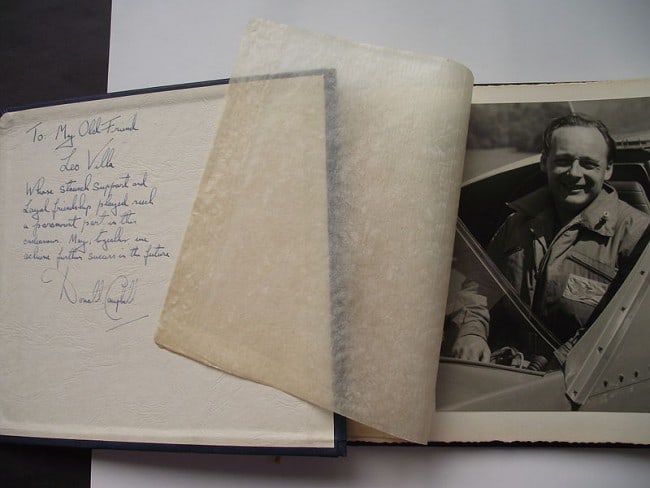 To. My Old Friend
Leo Villa
Whose staunch support and
Loyal friendship played such
a paramount part in this
endeavour. May, together we
achieve further success in the future
Donald Campbell